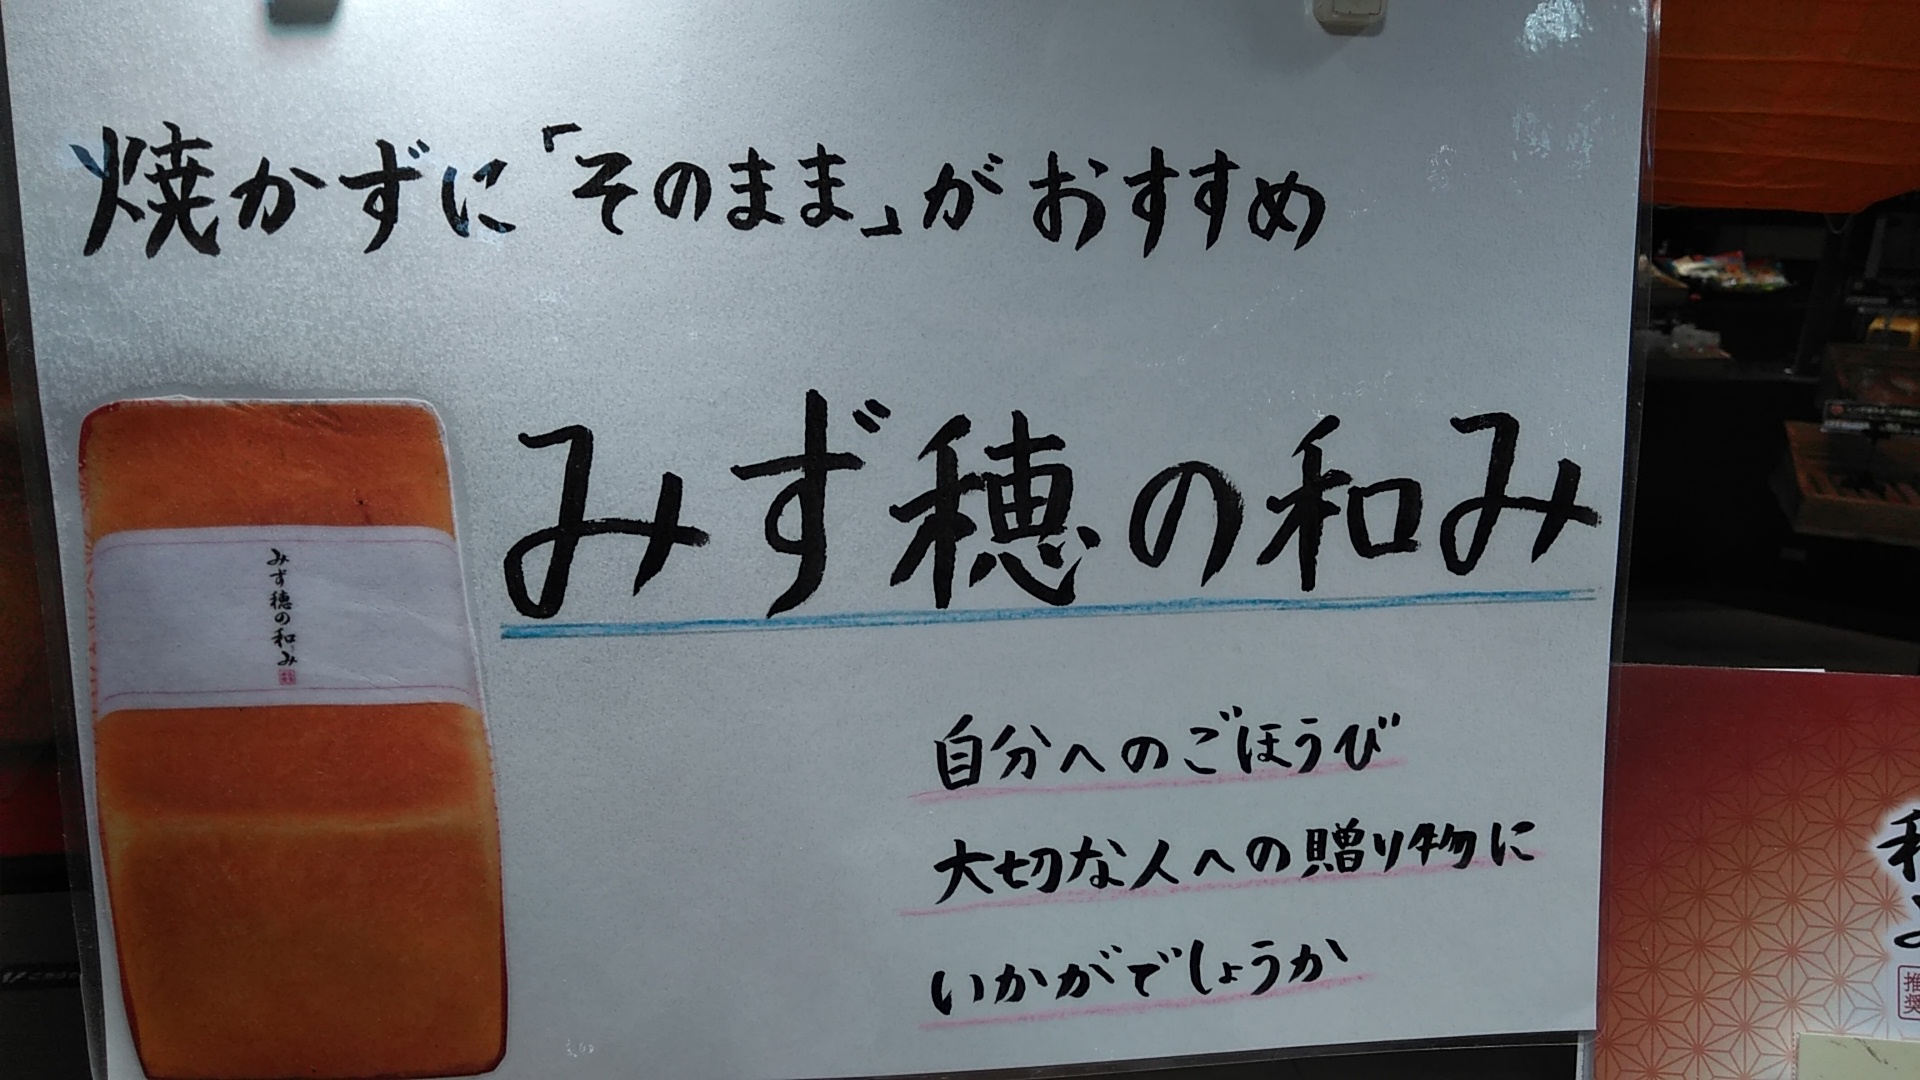 焼かずに「そのまま」がおすすめ
みず穂の和み
みず穂の和み
自分へのごほうび
大切な人への贈り物に
いかがでしょうか
推奨